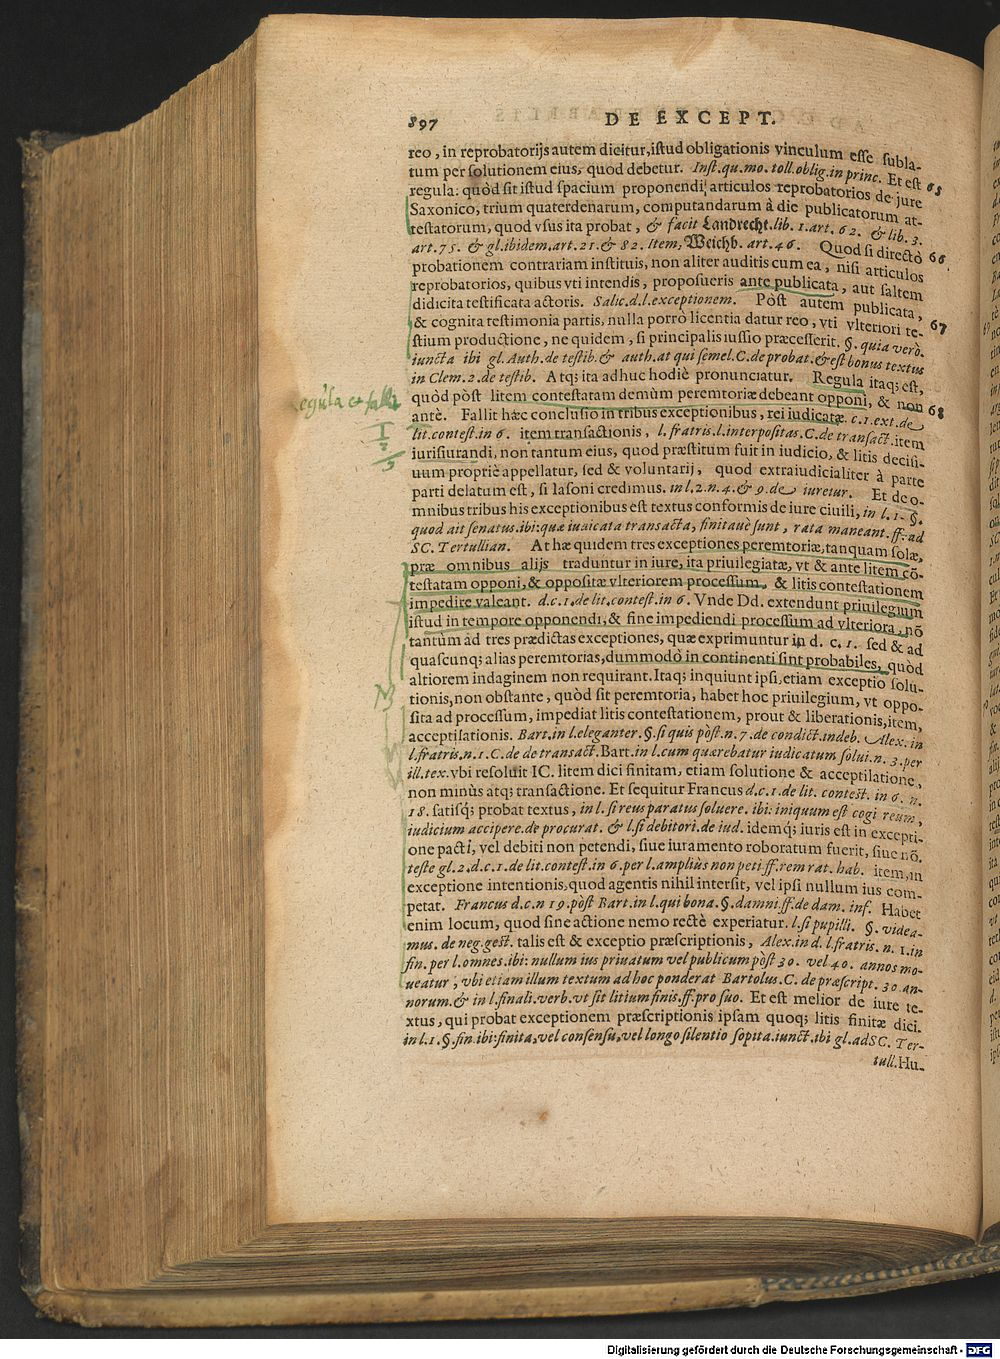 897 DE EXCEPT.
reo, in reprobatorijs autem dicitur, istud obligationis vinculum esse subla-
tum per solutionem eius, quod debetur. Inst. qu. mo. toll. oblig. in princ. Et est 65
regula: quòd sit istud spacium proponendi articulos reprobatorios de jure
Saxonico, trium quaterdenarum, computandarum à die publicatorum at-
testatorum, quod vsus ita probat, & facit Landrecht. lib. 1. art. 62. & lib. 3.
art. 75. & gl. ibidem. art. 21. & 82. Item, Weichb. art. 46. Quod si directò 66
probationem contrariam instituis, non aliter auditis cum ea, nisi articulos
reprobatorios, quibus vti intendis, proposueris ante publicata, aut saltem
didicita testificata actoris. Salic. d. l. exceptionem. Pòst autem publicata,
& cognita testimonia partis, nulla porrò licentia datur reo, vti vlteriori te- 67
stium productione, ne quidem, si principalis iussio præcesserit. §. quia verò.
iuncta ibi gl. Auth. de testib. & auth. at qui semel. C. de probat. & est bonus textus
in Clem. 2. de testib. Atq; ita adhuc hodiè pronunciatur. Regula itaq; est,
Regula et fallit
quòd pòst litem contestatam demùm peremtoriæ debeant opponi, & non 68
antè. Fallit hæc conclusio in tribus exceptionibus, rei iudicatæ. c. 1. ext. de
1
lit. contest. in 6. item transactionis, l. fratris. l. interpositas. C. de transact. item
2
iurisiurandi, non tantum eius, quod præstitum fuit in iudicio, & litis decisi-
3
uum propriè appellatur, sed & voluntarij, quod extraiudicialiter à parte
parti delatum est, si Iasoni credimus. in l. 2. n. 4. & 9. de iuretur. Et de o-
mnibus tribus his exceptionibus est textus conformis de iure ciuili, in l. 1. §.
quod ait senatus. ibi: quæ iuaicata transacta, finitauè sunt, rata maneant. ff. ad
SC. Tertullian. At hæ quidem tres exceptiones peremtoriæ, tanquam solæ,
præ omnibus alijs traduntur in iure, ita priuilegiatæ, vt & ante litem cō-
testatam opponi, & oppositæ vlteriorem processum, & litis contestationem
impedire valeant. d. c. 1. de lit. contest. in 6. Vnde Dd. extendunt priuilegium
istud in tempore opponendi, & fine impediendi processum ad vlteriora, nō
tantùm ad tres prædictas exceptiones, quæ exprimuntur in d. c. 1. sed & ad
quascunq; alias peremtorias, dummodò in continenti sint probabiles, quòd
altiorem indaginem non requirant. Itaq; inquiunt ipsi, etiam exceptio solu-
tionis, non obstante, quòd sit peremtoria, habet hoc priuilegium, vt oppo-
sita ad processum, impediat litis contestationem, prout & liberationis, item,
acceptilationis. Bart. in l. eleganter. §. si quis pòst. n. 7. de condict. indeb. Alex. in
l. fratris. n. 1. C. de de transact. Bart. in l. cum quærebatur iudicatum solui. n. 3. per
ill. tex. vbi resoluit IC. litem dici finitam, etiam solutione & acceptilatione,
non minùs atq; transactione. Et sequitur Francus d. c. 1. de lit. contest. in 6. n.
18. satisq; probat textus, in l. si reus paratus soluere. ibi: iniquum est cogi reum,
iudicium accipere. de procurat. & l. si debitori. de iud. idemq; iuris est in excepti-
one pacti, vel debiti non petendi, siue iuramento roboratum fuerit, siue nō.
teste gl. 2. d. c. 1. de lit. contest. in 6. per l. amplius non peti ff. rem rat. hab. item, in
exceptione intentionis, quod agentis nihil intersit, vel ipsi nullum ius com-
petat. Francus d. c. n 19. pòst Bart. in l. qui bona. §. damni. ff. de dam. inf. Habet
enim locum, quod sine actione nemo rectè experiatur. l. si pupilli. §. videa-
mus. de neg. gest. talis est & exceptio præscriptionis, Alex. in d. l. fratris. n. 1. in
fin. per l. omnes. ibi: nullum ius priuatum vel publicum pòst 30. vel 40. annos mo-
ueatur; vbi etiam illum textum ad hoc ponderat Bartolus. C. de præscript. 30 an-
norum. & in l. finali. verb. vt sit litium finis. ff. pro suo. Et est melior de iure te-
xtus, qui probat exceptionem præscriptionis ipsam quoq; litis finitæ dici.
in l. 1. §. fin. ibi: finita, vel consensu, vel longo silentio sopita. iunct. ibi gl. ad SC. Ter-
tull. Hu-
Digitalisierung gefördert durch die Deutsche Forschungsgemeinschaft - DFG